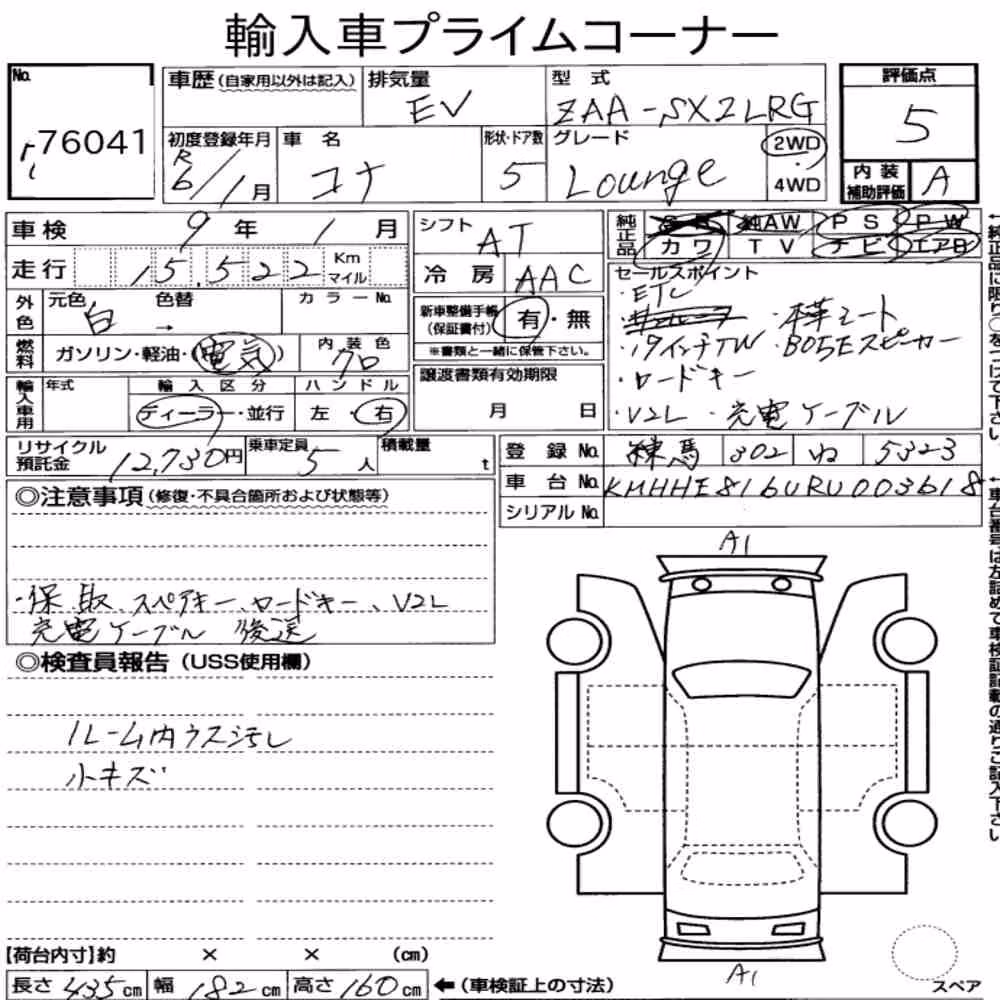 輸入車プライムコーナー
No. 76041
車歴(自家用以外は記入) 排気量 EV 型式 ZAA-SX2LRG
評価点 5
初度登録年月 R6/1月 車名 コナ 形状・ドア数 5 グレード Lounge 2WD・4WD
内装補助評価 A
車検 9年 1月
走行 15,522 Km マイル
外色 元色 白 色替 → カラーNo.
燃料 ガソリン・軽油・(電気) 内装色 クロ
輸入車用 年式 輸入区分 ディーラー・並行 ハンドル 左・右
シフト AT
冷房 AAC
新車整備手帳(保証書付) 有・無
※書類と一緒に保管下さい。
譲渡書類有効期限 月 日
純正品 純AW PS PW
カワ TV ナビ エアB
セールスポイント
・ETC
・本革シート
・19インチTW ・BOSEスピーカー
・ロードキー
・V2L ・充電ケーブル
リサイクル預託金 12,730円 乗車定員 5人 積載量 t
登録No. 練馬 302 ね 5323
車台No. KMHHE816URU003618
シリアルNo.
◎注意事項(修復・不具合箇所および状態等)
・保、取、スペアキー、ロードキー、V2L
充電ケーブル 後送
◎検査員報告(USS使用欄)
ルーム内ウス汚し
小キズ
A1
A1
【荷台内寸】約 × × (cm)
長さ 435cm 幅 182cm 高さ 160cm ←(車検証上の寸法)
スペア
←純正品に限り○をつけて下さい。
←車台番号は左詰めで車検証記載の通りご記入下さい